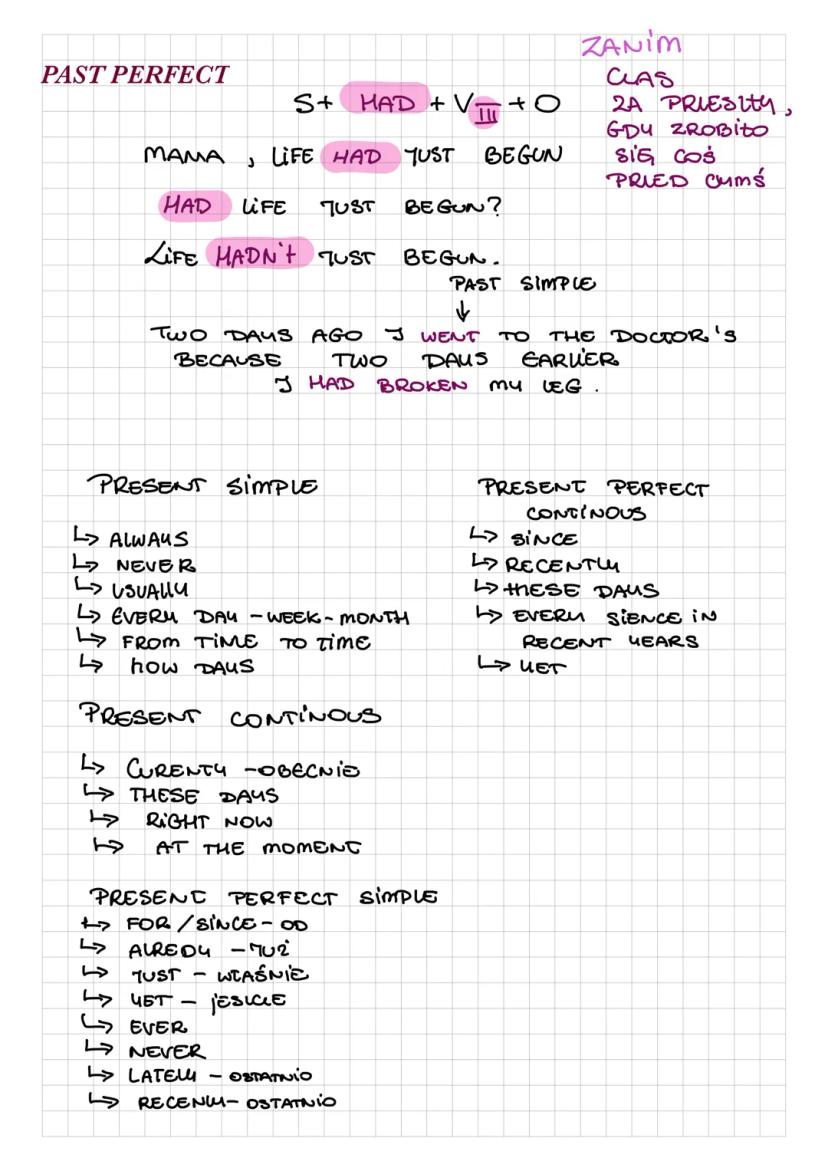 ZANIM
PAST PERFECT
CZAS
ZA PRZESZŁY,
GDY ZROBIŁO
SIĘ COŚ
PRZED CZYMŚ
S+ HAD + V III + O
MAMA, LIFE HAD JUST BEGUN
HAD LIFE JUST BEGUN?
LIFE HADN't JUST BEGUN.
PAST SIMPLE
↓
TWO DAYS AGO I WENT TO THE DOCTOR'S
BECAUSE TWO DAYS EARLIER
I HAD BROKEN MY LEG.
PRESENT SIMPLE
↳ ALWAYS
↳ NEVER
↳ USUALLY
↳ EVERY DAY - WEEK - MONTH
↳ FROM TIME TO TIME
↳ NOW DAYS
PRESENT PERFECT
CONTINOUS
↳ SINCE
↳ RECENTLY
↳ tHESE DAYS
↳ EVERY SIENCE IN
RECENT YEARS
↳ YET
PRESENT CONTINOUS
↳ CURENTY - OBECNIE
↳ THESE DAYS
↳ RIGHT NOW
↳ AT THE MOMENT
PRESENT PERFECT SIMPLE
↳ FOR / SINCE - OD
↳ ALREDY - JUŻ
↳ JUST - WŁAŚNIE
↳ YET - JESZCZE
↳ EVER
↳ NEVER
↳ LATELY - OSTATNIO
↳ RECENLY - OSTATNIO